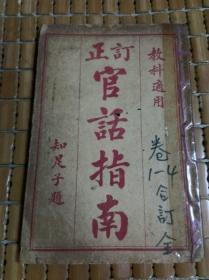 訂正
教科適用
官話指南
知足子題
卷1-4合訂全